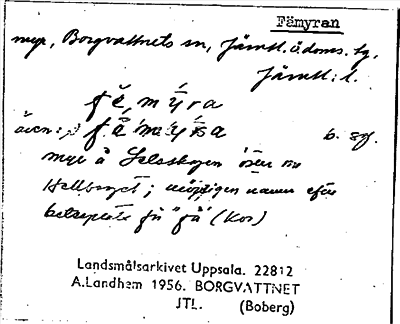 Fämyran
myr, Borgvattnets sn, Jämtl. ö. doms. tg,
Jämtl: l.
fĕ, mýra
även: fä mýra b. sg.
myr å Selsskogen öster om
Hallberget; möjligen namn efter
betesplats för "fä" (kor)
Landsmålsarkivet Uppsala. 22812
A.Landhem 1956. BORGVATTNET
JTL. (Boberg)